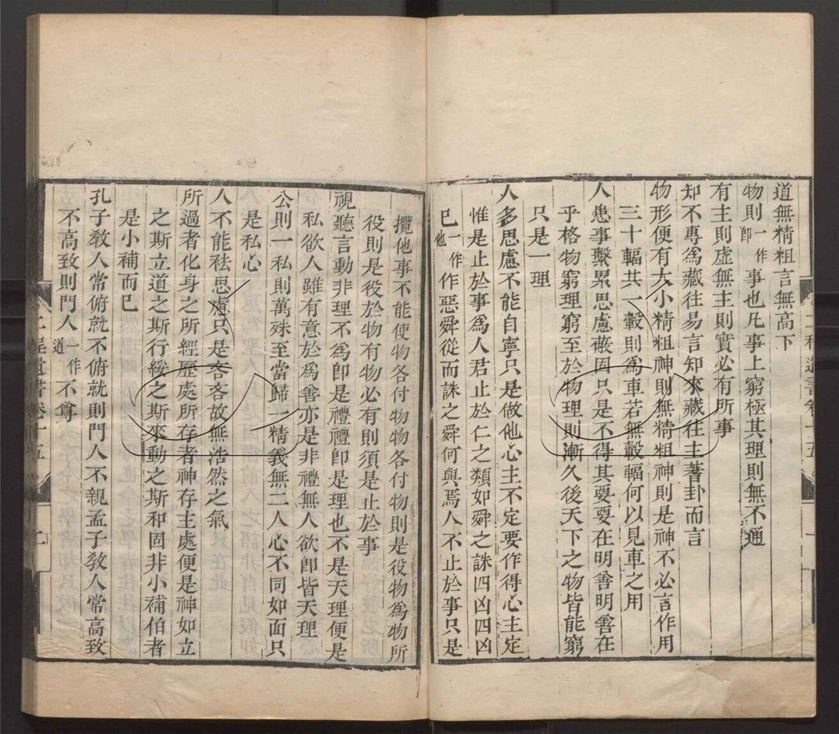 道無精粗言無高下
物則一作即事也凡事上窮極其理則無不通
有主則虛無主則實必有所事
知不專爲藏往易言知來藏往主蓍卦而言
物形便有大小精粗神則無精粗神則是神不必言作用
三十輻共一轂則爲車若無轂輻何以見車之用
人患事繫累思慮蔽固只是不得其要要在明善明善在
乎格物窮理窮至於物理則漸久後天下之物皆能窮
只是一理
人多思慮不能自寧只是做他心主不定要作得心主定
惟是止於事爲人君止於仁之類如舜之誅四凶四凶
已一作他作惡舜從而誅之舜何與焉人不止於事只是
攬他事不能使物各付物物各付物則是役物爲物所
役則是役於物有物必有則須是止於事
視聽言動非理不爲卽是禮禮卽是理也不是天理便是
私欲人雖有意於爲善亦是非禮無人欲卽皆天理
公則一私則萬殊至當歸一精義無二人心不同如面只
是私心
人不能祛思慮只是吝吝故無浩然之氣
所過者化身之所經歷處所存者神存主處便是神如立
之斯立道之斯行綏之斯來動之斯和固非小補伯者
是小補而已
孔子敎人常俯就不俯就則門人不親孟子敎人常高致
不高致則門人一作道不尊
二程遺書卷十五